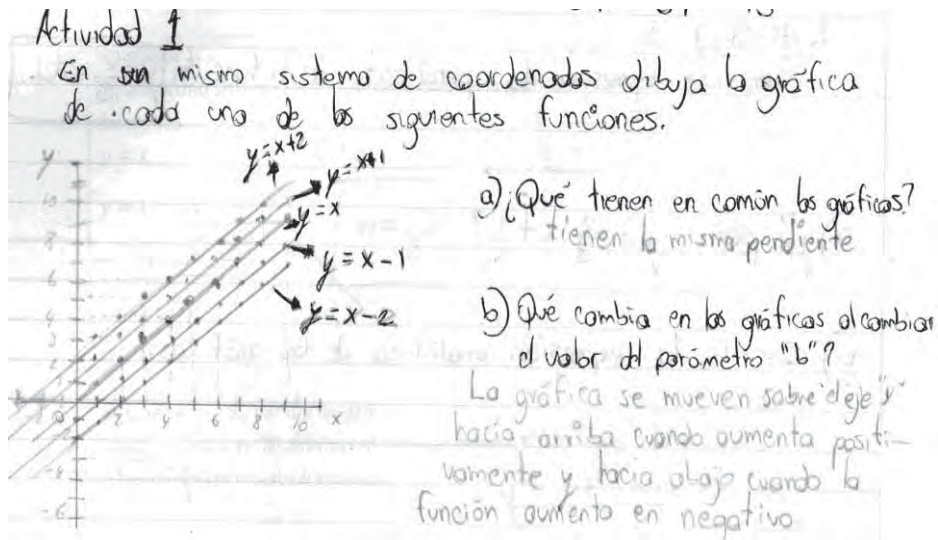 Actividad 1
En un mismo sistema de coordenadas dibuja la gráfica
de cada una de las siguientes funciones.
y = x+2
y = x+1
y = x
y = x - 1
y = x - 2
y
10
8
6
4
2
0 2 4 6 8 10 x
-4
-6
a) ¿Qué tienen en común las gráficas?
tienen la misma pendiente
b) Qué cambia en las gráficas al cambiar
el valor del parámetro "b"?
La gráfica se mueven sobre el eje "y"
hacia arriba cuando aumenta positi-
vamente y hacia abajo cuando la
función aumenta en negativo